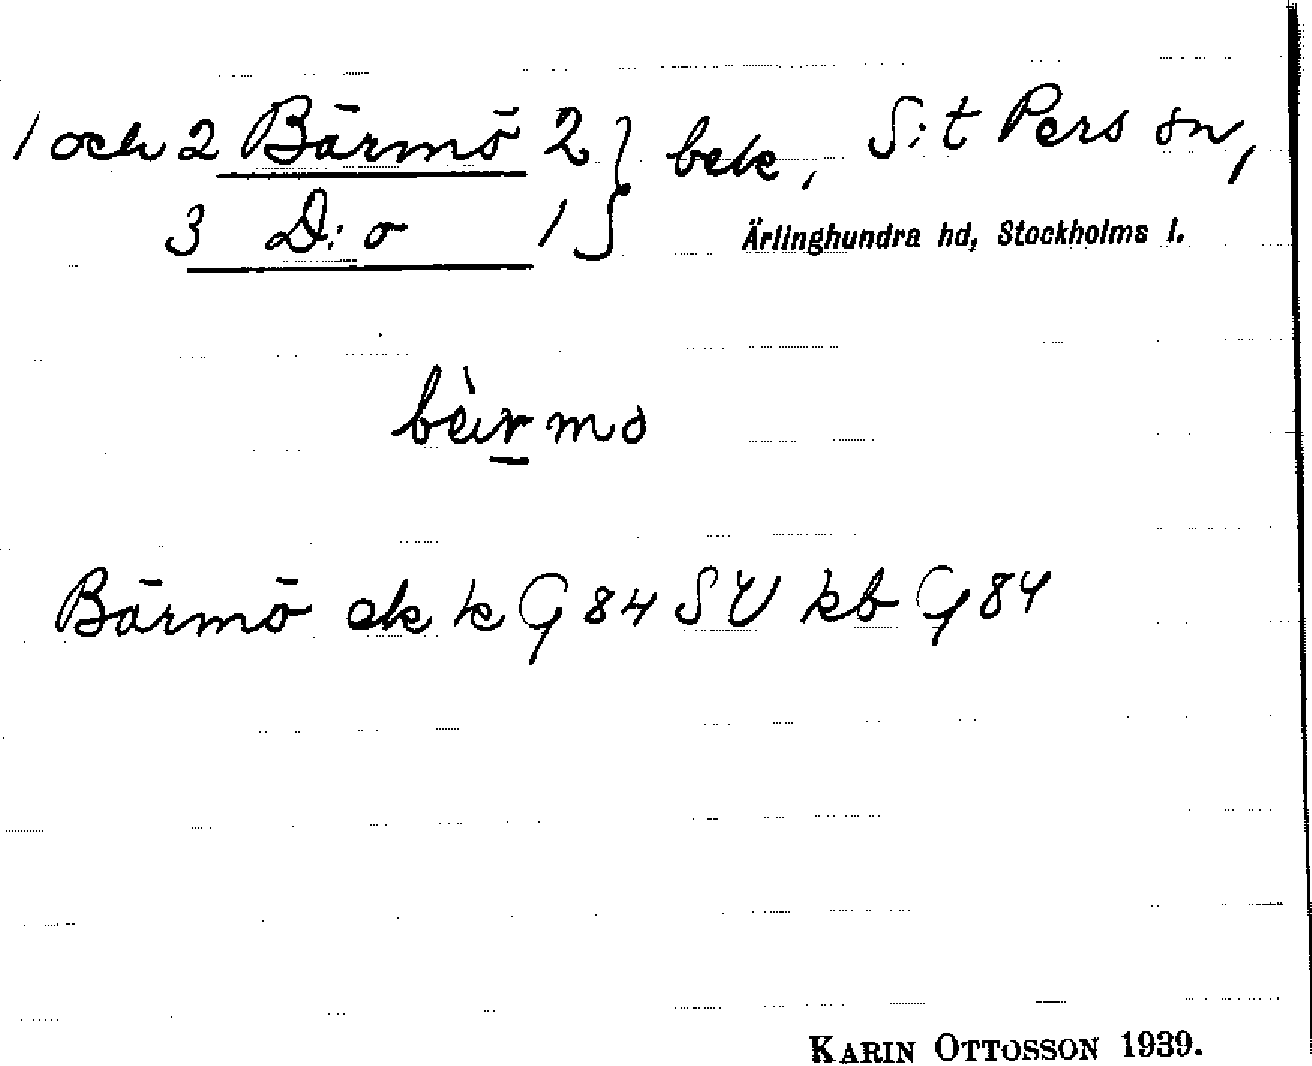 1 och 2 Bärmö 2 } bek, S:t Pers sn,
3 D:o 1
Ärlinghundra hd, Stockholms l.
bärmo
Bärmö ek k G 84 SV kb G 84
KARIN OTTOSSON 1939.